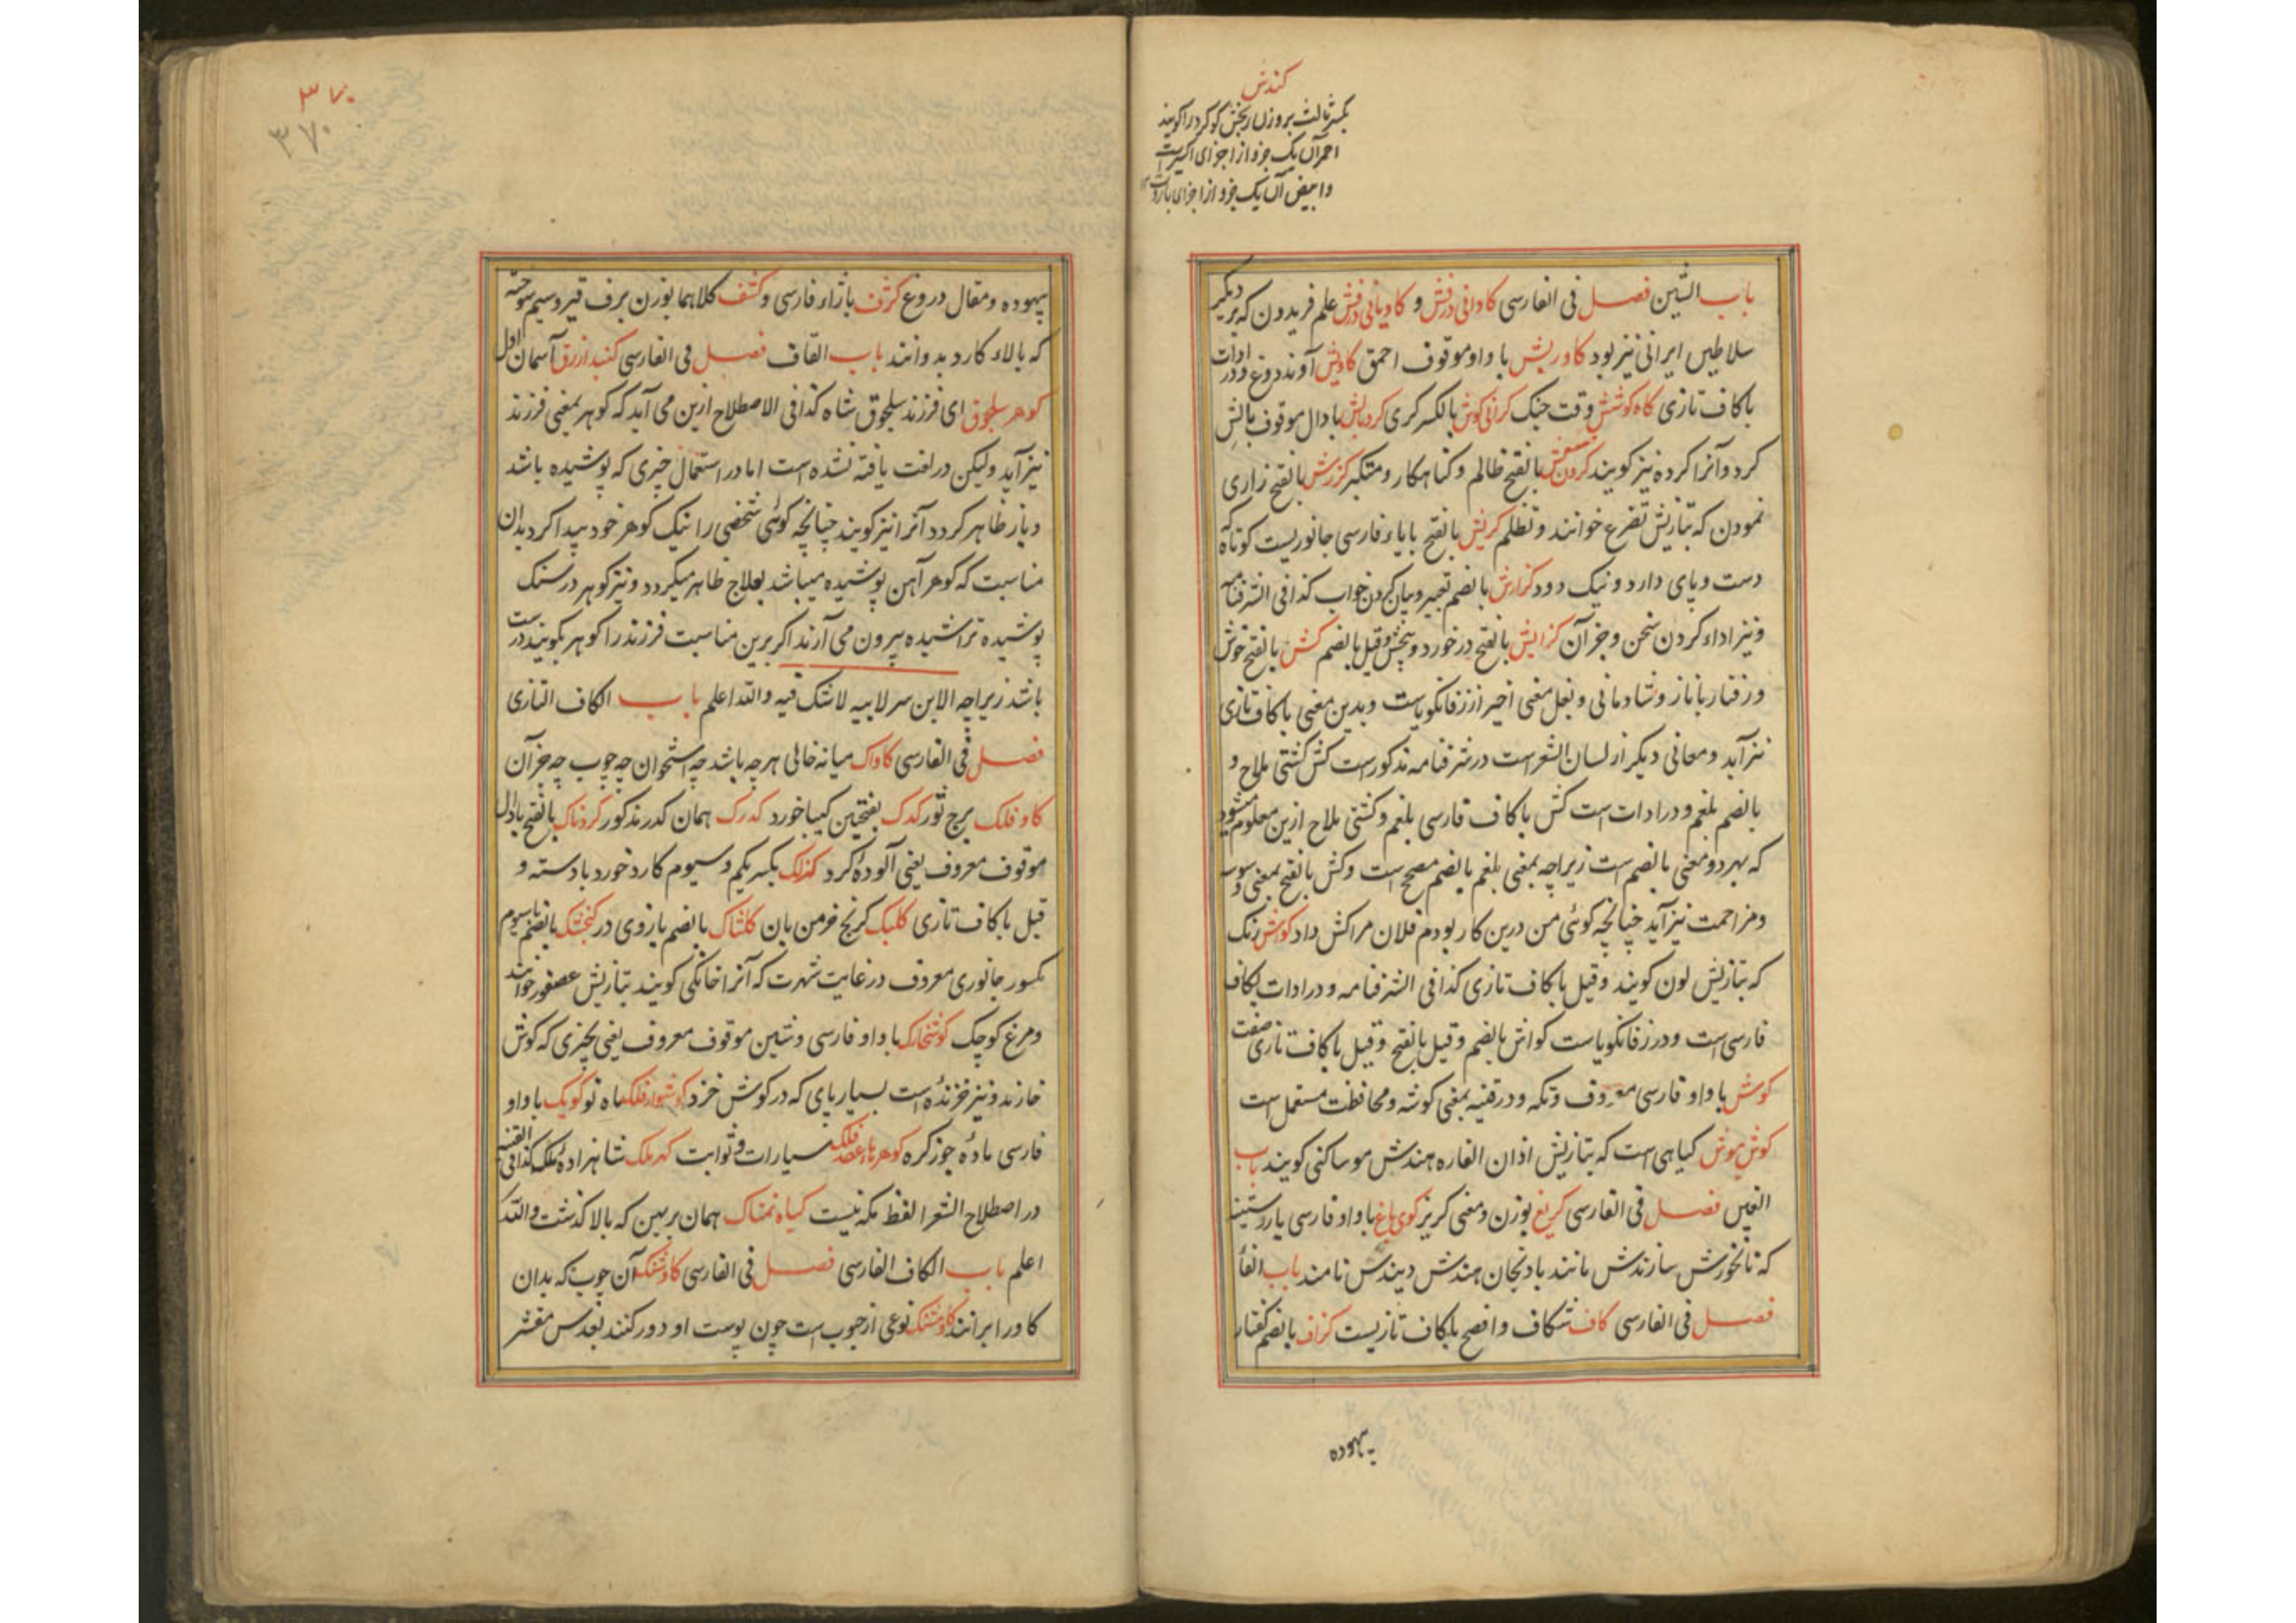 کندش
بکسر ثالث بروزن رنجش کوکرد را کویند
احمر آن یک جزو از اجزای اکسیر است
و ابیض آن یک جزو از اجزای باروت ۱۲
باب الشین فصل فی الفارسی کاوانی درفش و کاویانی درفش علم فریدون که بر دیکر
سلاطین ایرانی نیز بود کاوریش با واو موقوف احمق کاویش آوند دوغ و در ادات
با کاف تازی کاه کوشش وقت جنک کرانی کوش بالکسر کری کردبالش با دال موقوف بالش
کرد و آنرا کرده نیز کویند کردن کش بالفتح ظالم و کناهکار و متکبر کزرش بالفتح زاری
نمودن که بتازیش تضرع خوانند و تظلم کرپش بالفتح با پاء فارسی جانوریست کوتاه که
دست و پای دارد و نیک دود کزارش بالضم تعبیر و بیان کردن خواب کذا فی الشرفنامه
و نیز اداء کردن سخن و جز آن کزایش بالفتح درخورد و بخش و قیل بالضم کش بالفتح خوش
و رفتار با ناز و شادمانی و بغل معنی اخیر از زفانکویاست و بدین معنی با کاف تازی
نیز آید و معانی دیکر از لسان الشعراست در شرفنامه مذکور است کش کشتی ملاح و
بالضم بلغم و در ادات است کش با کاف فارسی بلغم و کشتی ملاح ازین معلوم میشود
که بهر دو معنی بالضم است زیراچه بمعنی بلغم بالضم مصحح است وکش بالفتح بمعنی وسوسه
و مزاحمت نیز آید چنانچه کوئی من درین کار بودم فلان مرا کش داد کواش رنک
که بتازیش لون کویند و قیل با کاف تازی کذا فی الشرفنامه و در ادات بکاف
فارسی است و در زفانکویاست کواش بالضم و قیل بالفتح و قیل با کاف تازی صفت
کوش با واو فارسی معروف و تکه و در قنیه بمعنی کوشه و محافظت مستعمل است
کوش موش کیاهی است که بتازیش اذان الفاره هندش موساکنی کویند باب
الغین فصل فی الفارسی کریغ بوزن و معنی کریز کوی باغ با واو فارسی باردستینه
که نانخورش سازندش مانند بادنجان هندش دیندس نامند باب الفا
فصل فی الفارسی کاف شکاف و افصح با کاف تازیست کزاف بالضم کفتار
بیهوده
۳۷۰
۳۷۰
بیهوده و مقال دروغ کژف با زاء فارسی و کشف کلاهما بوزن برف قیر و سیم سوخته
که بالاء کارد بدوانند باب القاف فصل فی الفارسی کنبد ازرق آسمان اول
کوهر سلجوق ای فرزند سلجوق شاه کذا فی الاصطلاح ازین می آید که کوهر بمعنی فرزند
نیز آید ولیکن در لغت یافته نشده است اما در استعمال چیزی که پوشیده باشد
و باز ظاهر کردد آنرا نیز کویند چنانچه کوئی شخصی را نیک کوهر خود پیدا کرد بدان
مناسبت که کوهر آهن پوشیده میباشد بعلاج ظاهر میکردد و نیز کوهر در سنک
پوشیده تراشیده بیرون می آرند اکر برین مناسبت فرزند را کوهر بکویند درست
باشد زیراچه الابن سر لابیه لاشک فیه والله اعلم باب الکاف التازی
فصل فی الفارسی کاواک میانه خالی هرچه باشد چه استخوان چه چوب چه جز آن
کاو فلک برج ثور کدک بفتحتین کیبا خورد کدرک همان کدر مذکور کردناک بالفتح با دال
موقوف معروف یعنی آلوده کرد کزلک بکسر یکم و سیوم کارد خورد با دسته و
قیل با کاف تازی کلبک کرنج خرمن بان کلشاک بالضم بازوی در کنجشک بالضم با سیوم
مکسور جانوری معروف در غایت شهرت که آنرا خانکی کویند بتازیش عصفور خوانند
و مرغ کوچک کوشخارک با واو فارسی و شین موقوف معروف یعنی چیزی که کوش
خازند و نیز خزنده است بسیار پای که در کوش خزد کوشوار فلک ماه نو کویک با واو
فارسی مادهٔ جوزکره کوهرهاء فلک سیارات و ثوابت کهرملک شاهزاده ملک کذا فی القنیه
در اصطلاح الشعرا لفظ مکه نیست کیاه نمناک همان بربهن که بالا کذشت والله
اعلم باب الکاف الفارسی فصل فی الفارسی کاوشنک آن چوب که بدان
کاو را برانند کاومشنک نوعی از حبوب است چون پوست او دور کنند بعدس مقشر